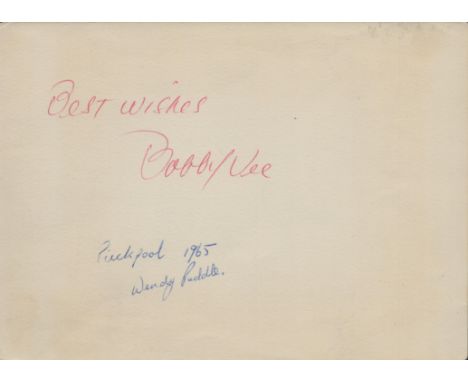 Best wishes
Bobby Vee
1965
Wendy Puddle.